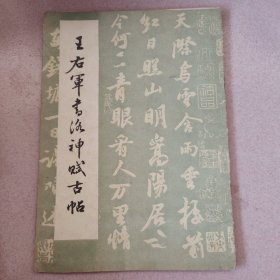 天際烏雲含雨重樓前
紅日照山明嵩陽居士
今何在青眼看人万里情
錢塘一日
王右軍書洛神賦古帖